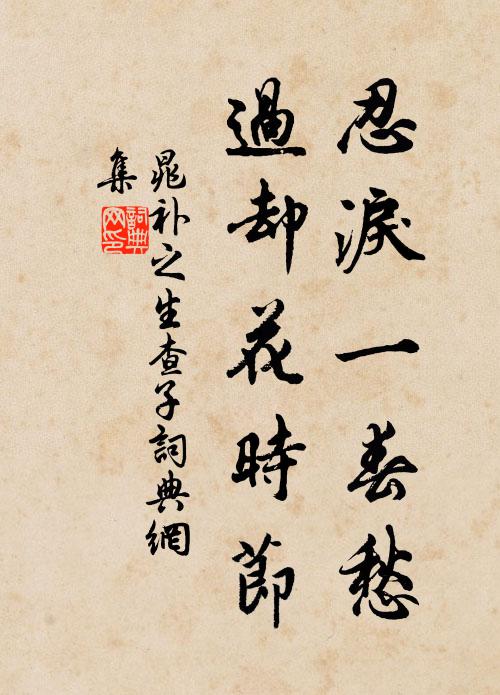 忍淚一春愁
過却花時節
晁补之生查子詞典網
集
詞典網印